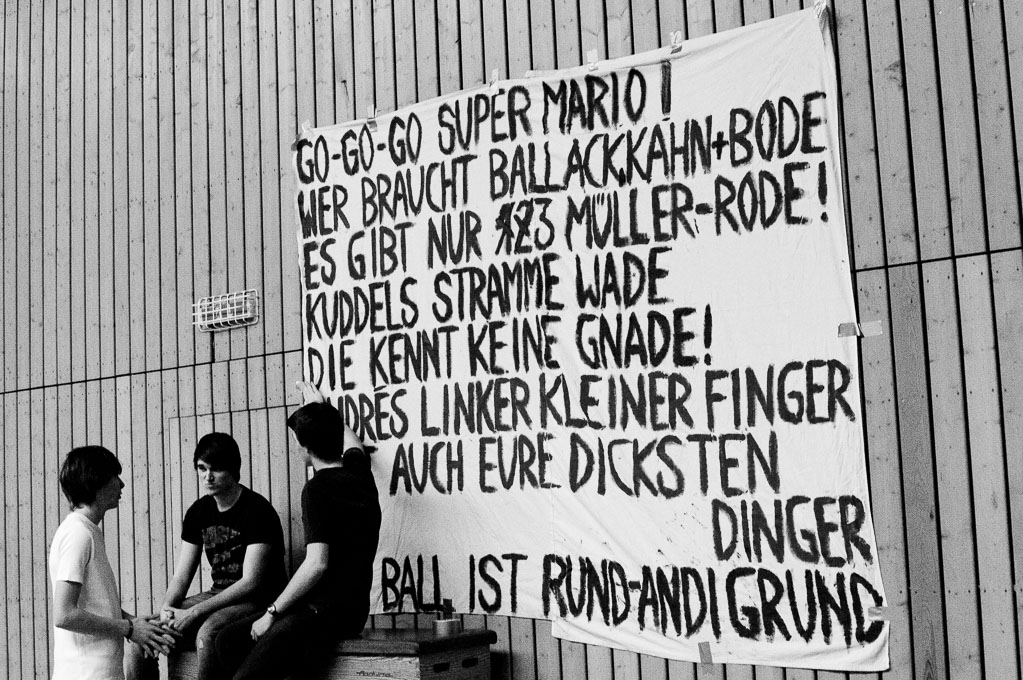 GO-GO-GO SUPER MARIO!
WER BRAUCHT BALLACK,KAHN+BODE
ES GIBT NUR 123 MÜLLER-RODE!
KUDDELS STRAMME WADE
DIE KENNT KEINE GNADE!
LINKER KLEINER FINGER
AUCH EURE DICKSTEN
DINGER
BALL IST RUND-ANDI GRUND